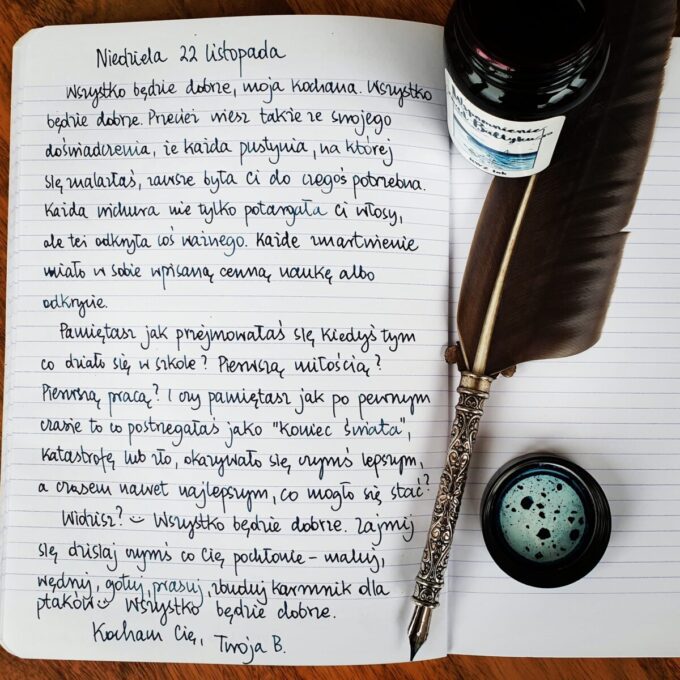 Niedziela 22 listopada
Wszystko będzie dobrze, moja Kochana. Wszystko
będzie dobrze. Przecież wiesz także ze swojego
doświadczenia, że każda pustynia, na której
się znalazłaś, zawsze była Ci do czegoś potrzebna.
Każda wichura nie tylko potargała Ci włosy,
ale też odkryła coś ważnego. Każde zmartwienie
miało w sobie wpisaną cenną naukę albo
odkrycie.
Pamiętasz jak przejmowałaś się kiedyś tym
co działo się w szkole? Pierwszą miłością?
Pierwszą pracą? I czy pamiętasz jak po pewnym
czasie to co postrzegałaś jako "Koniec świata",
katastrofę lub zło, okazywało się czymś lepszym,
a czasem nawet najlepszym, co mogło się stać?
Widzisz? Wszystko będzie dobrze. Zajmij
się dzisiaj czymś co Cię pochłonie - maluj,
wędruj, gotuj, prasuj, zbuduj karmnik dla
ptaków Wszystko będzie dobrze.
Kocham Cię, Twoja B.
Wspomnienie
Bałtyku